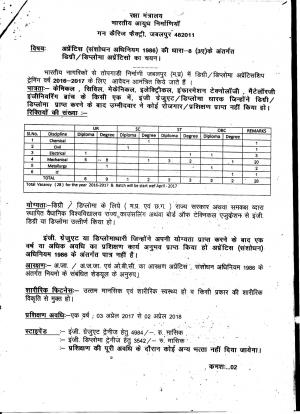 रक्षा मंत्रालय
भारतीय आयुध निर्माणियाँ
गन कैरिज फैक्ट्री, जबलपुर 482011
विषय: अप्रेंटिस (संशोधन अधिनियम 1986) की धारा-8 (3ए) के अंतर्गत
डिग्री/डिप्लोमा अप्रेंटिसों का चयन।
भारतीय नागरिकों से तोपगाड़ी निर्माणी जबलपुर (म.प्र) में डिग्री/ डिप्लोमा अप्रेंटिसशिप
ट्रेनिंग वर्ष 2016-2017 के लिए आवेदन आमंत्रित किये जाते हैं।
पात्रता:- केमिकल, सिविल, मेकेनिकल, इलेक्ट्रिकल, इंफारमेशन टेक्नोलॉजी, मैटेलॉरजी
इंजीनियरिंग ब्रांच के किसी एक में, इंजी ग्रेजुएट/डिप्लोमा धारक जिन्होंने डिग्री/
डिप्लोमा प्राप्त करने के बाद उम्मीदवार ने कोई रोजगार/प्रशिक्षण प्राप्त नहीं किया हो।
रिक्तियों की संख्या :-
Sl.No. Discipline UR SC ST OBC REMARKS
Diploma Degree Diploma Degree Diploma Degree Diploma Degree
1 Chemical
2 Civil
3 Electrical
4 Mechanical
5 Metallurgy
6 IT
TOTAL
Total Vacancy (28) for the year 2016-2017 & Batch will be start wef April - 2017
योग्यता:-डिग्री / डिप्लोमा के लिये ( म.प्र एवं छ.ग. ) राज्य सरकार अथवा समकक्ष द्वारा
स्थापित वैधानिक विश्वविद्यालय राज्य काउंसलिंग अथवा बोर्ड ऑफ टेक्निकल एजुकेशन से इंजी.
डिग्री या डिप्लोमा उत्तीर्ण किया हो।
इंजी. ग्रेजुएट या डिप्लोमाधारी जिन्होंने अपनी योग्यता प्राप्त करने के बाद एक
वर्ष या अधिक अवधि का प्रशिक्षण कार्य अनुभव प्राप्त किया हो अप्रेंटिस (संशोधन)
अधिनियम 1986 के अंतर्गत पात्र नहीं हैं।
आरक्षण:- अ.जा. / अ.ज.जा. एवं ओ.बी.सी. का आरक्षण अप्रेंटिस, संशोधन अधिनियम 1986 के
अंतर्गत नियमों के संबंधित शेड्यूल के अनुरूप।
शारीरिक फिटनेस:- उत्तम मानसिक एवं शारीरिक स्वास्थ्य हो व किसी प्रकार की शारीरिक
विकृति से मुक्त हो।
प्रशिक्षण अवधि:-एक वर्ष ; 03 अप्रेल 2017 से 02 अप्रेल 2018
स्टाइपेंड :- इंजी. ग्रेजुएट ट्रेनीज हेतु 4984 /- रु. मासिक
:- इंजी. डिप्लोमा ट्रेनीज हेतु 3542 /- रु. मासिक
:- प्रशिक्षण की पूरी अवधि के दौरान कोई अन्य भत्ता नहीं दिया जायेगा।
क्रमशः..02